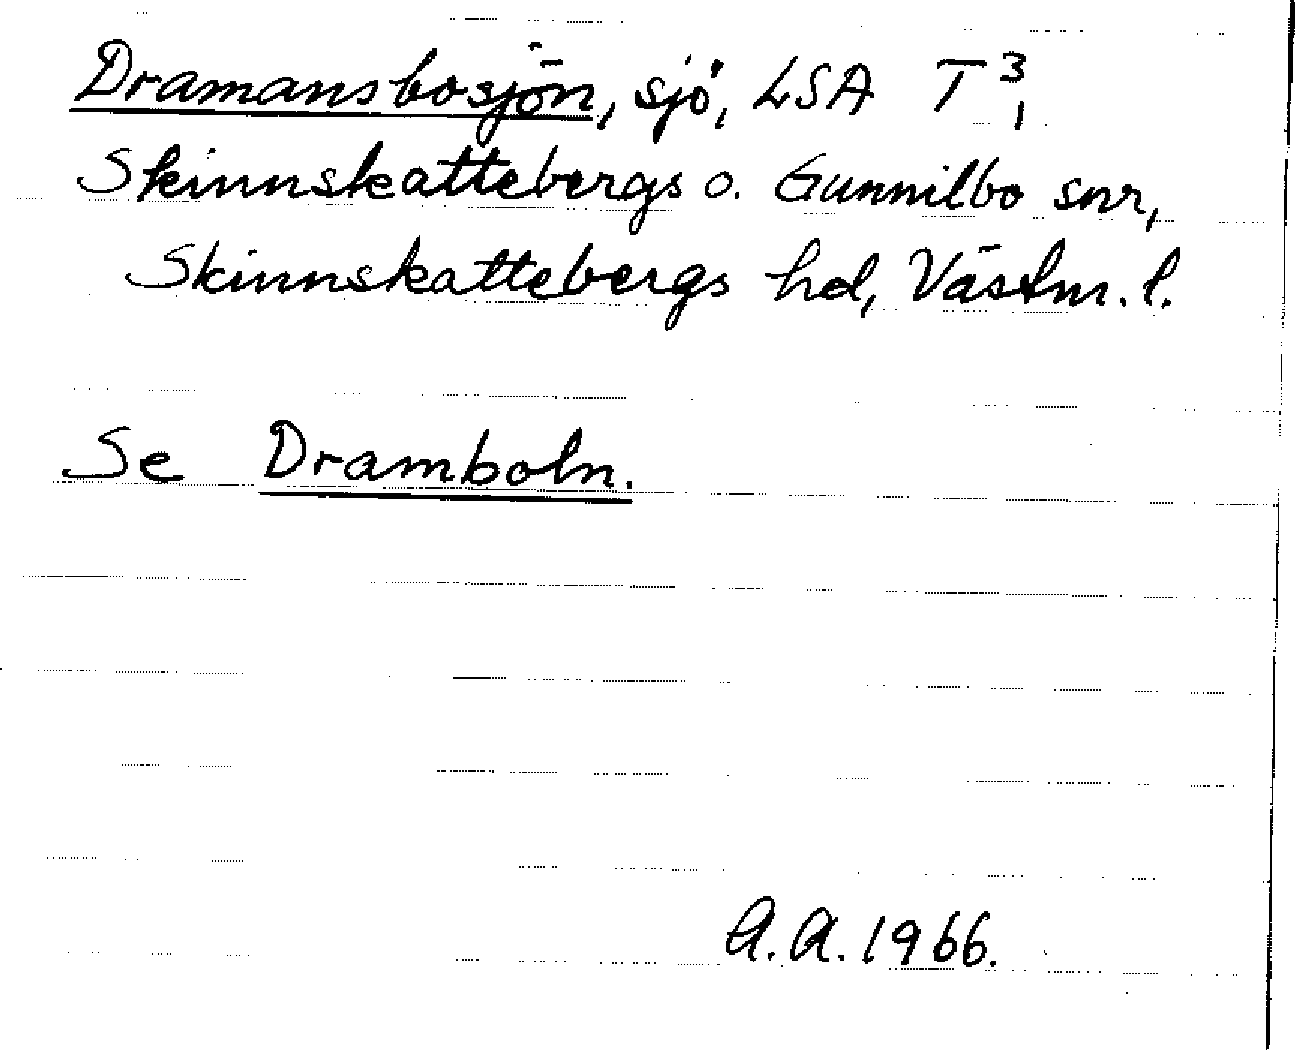 Dramansbosjön, sjö, LSA T³₁
Skinnskattebergs o. Gunnilbo snr,
Skinnskattebergs hd, Västm. l.
Se Dramboln.
A.A. 1966.